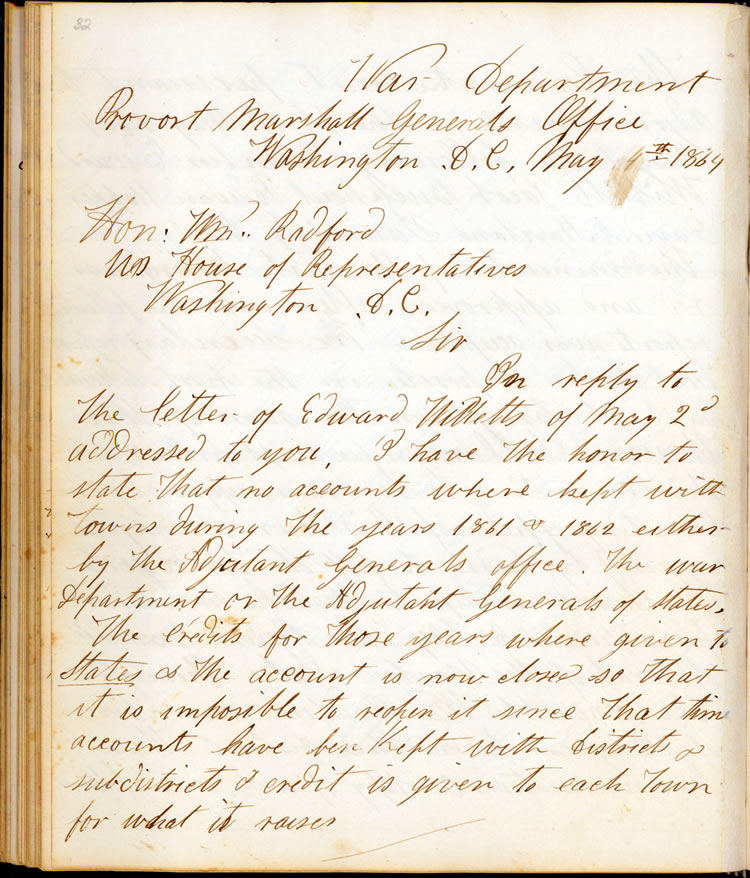 22
War Department
Provort Marshall Generals Office
Washington D.C. May 4th 1864
Hon: Wm. Radford
US House of Representatives
Washington D.C.
Sir
In reply to
the letter of Edward Willetts of May 2d
addressed to you, I have the honor to
state that no accounts where kept with
towns during the years 1861 & 1862 either
by the Adjutant Generals office. The war
Department or the Adjutant Generals of states.
The credits for those years where given to
States & the account is now closed so that
it is imposible to reopen it since that time
accounts have ben Kept with Districts &
subdistricts & credit is given to each Town
for what it raises